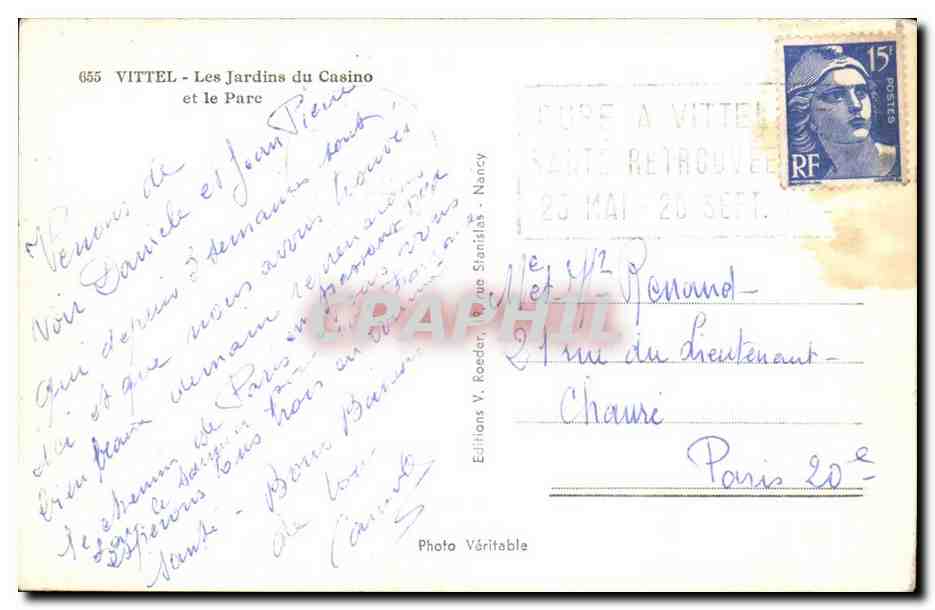 655 VITTEL - Les Jardins du Casino
et le Parc
Venons de
voir Danièle et Jean Pierre
qui depuis 2 semaines sont
ici et que nous avons trouvés
bien demain reprenons
le chemin de Paris en passant
espérons tous trois en
santé - Bons Baisers
de tous
CURE A VITTEL
SANTÉ RETROUVÉE
20 MAI - 20 SEPT.
15F
POSTES
RF
Editions V. Roeder, rue Stanislas - Nancy
CRAPHIL
Me et Mr Renard -
21 rue du Lieutenant -
Chauré
Paris 20e
Photo Véritable